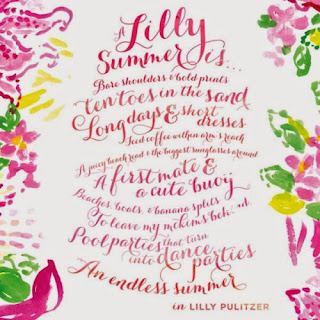 A Lilly
Summer is...
Bare shoulders & bold prints
ten toes in the sand
Long days & short dresses
Iced coffee within arm's reach
A juicy beach read & the biggest sunglasses around
A first mate &
a cute buoy
Beaches, boats, & banana splits
To leave my mckims behind
Pool parties that turn
into dance parties
An endless summer
in LILLY PULITZER